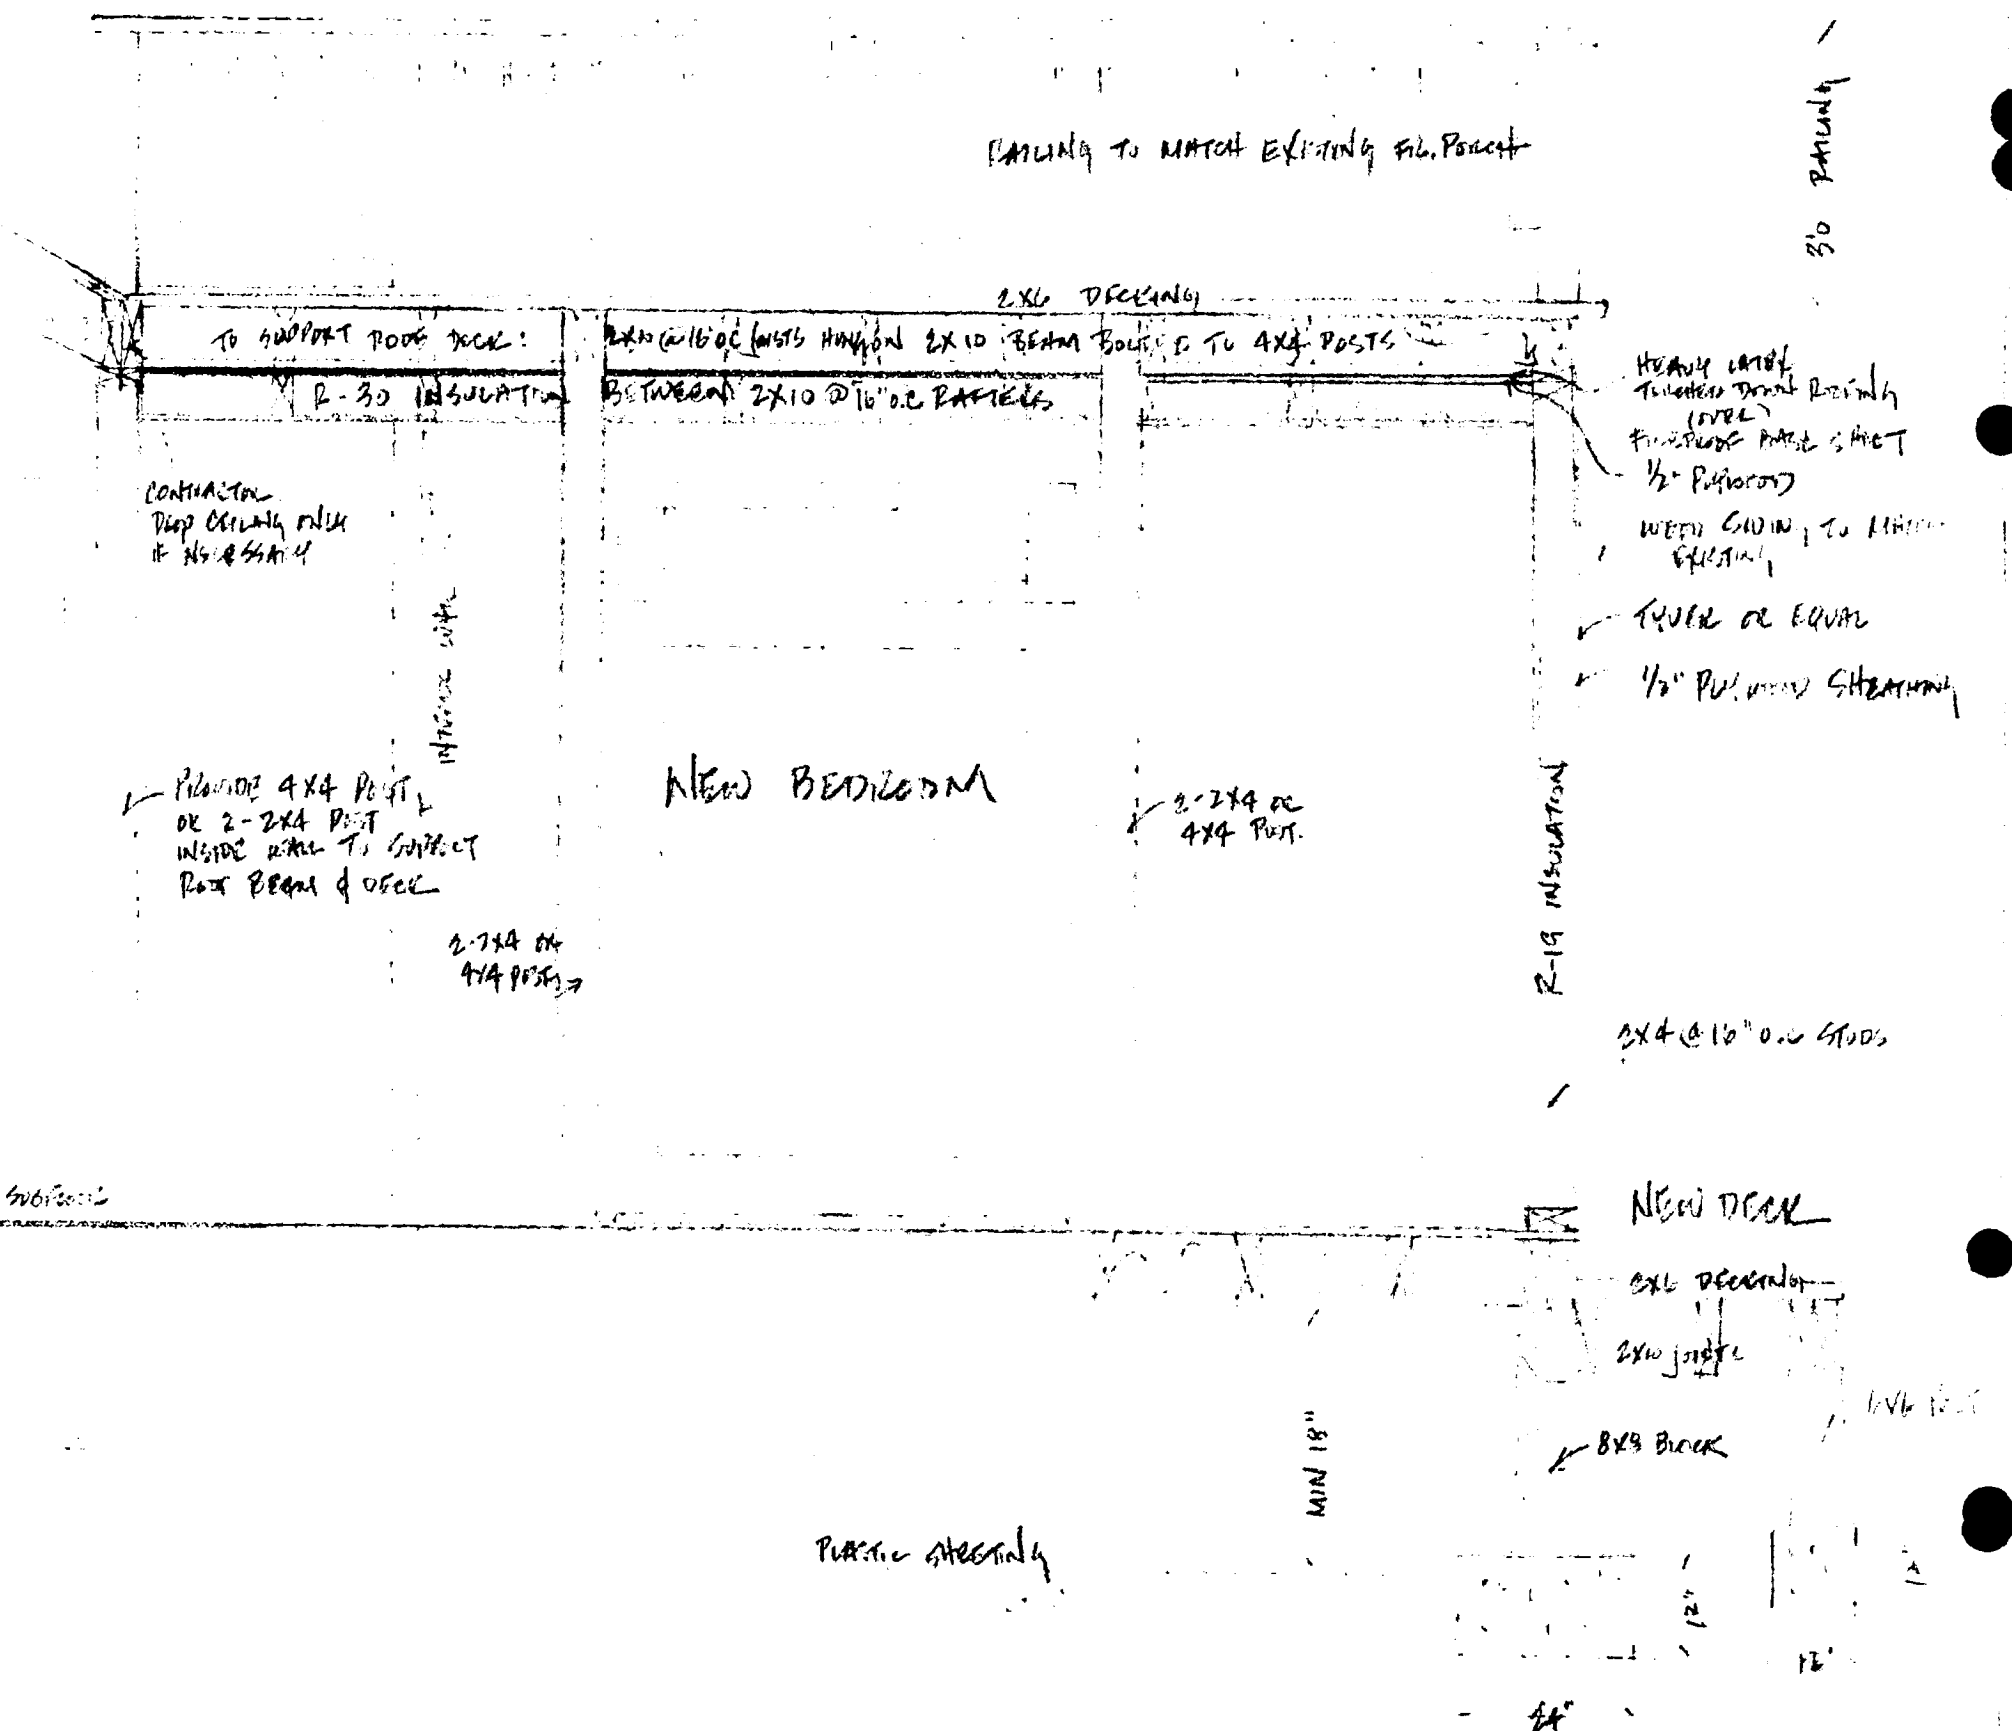 RAILING TO MATCH EXISTING PORCH
3'0 RAILING
2X6 DECKING
TO SUPPORT ROOF DECK:
2X10 @ 16" OC JOISTS HUNG ON 2X10 BEAM BOLTED TO 4X4 POSTS
R-30 INSULATION BETWEEN 2X10 @ 16" O.C RAFTERS
HEAVY
DOWN ROOFING
(OVER)
BASE SHEET
1/2" PLYWOOD
WOOD SIDING TO MATCH
EXISTING
TYVEK OR EQUAL
1/2" PLYWOOD SHEATHING
CONTRACTOR
DROP CEILING ONLY
IF NECESSARY
INTERIOR WALL
PROVIDE 4X4 POST
OR 2-2X4 POST
INSIDE WALL TO SUPPORT
ROOF BEAM & DECK
NEW BEDROOM
2-2X4 OR
4X4 POST.
2-2X4 OR
4X4 POSTS
R-19 INSULATION
2X4 @ 16" O.C STUDS
SUBFLOOR
NEW DECK
2X6 DECKING
2X10 JOISTS
8X8 BLOCK
MIN 18"
PLASTIC SHEETING
12"
12"
24"